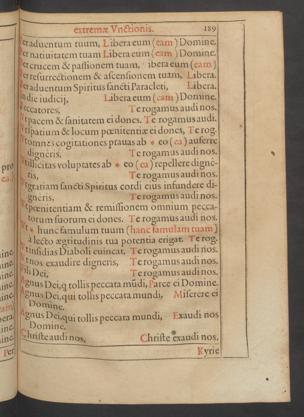 extremæ Vnctionis. 189
er aduentum tuum, Libera eum (eam) Domine.
er natiuitatem tuam Libera eum (eam) Domine.
er crucem & passionem tuam, ibera eum (eam)
er resurrectionem & ascensionem tuam, Libera.
er aduentum Spiritus sancti Paracleti, Libera.
n die iudicij, Libera eum (eam) Domine.
eccatores, Te rogamus audi nos.
t pacem & sanitatem ei dones. Te rogamus audi.
t spatium & locum pœnitentiæ ei dones, Te rog.
t omnes cogitationes prauas ab * eo (ea) auferre
digneris, Te rogamus audi nos.
t illicitas voluptates ab * eo (ea) repellere digne-
ris, Te rogamus audi nos.
t gratiam sancti Spiritus cordi eius infundere di-
gneris, Te rogamus audi nos.
t pœnitentiam & remissionem omnium pecca-
torum suorum ei dones. Te rogamus audi nos.
t * hunc famulum tuum (hanc famulam tuam)
à lecto ægritudinis tua potentia erigat. Te rog.
t insidias Diaboli euincat, Te rogamus audi nos.
t nos exaudire digneris, Te rogamus audi nos.
ili Dei, Te rogamus audi nos.
Agnus Dei, q tollis peccata mūdi, Parce ei Domine.
Agnus Dei, qui tollis peccata mundi, Miserere ei
Domine.
Agnus Dei, qui tollis peccata mundi, Exaudi nos
Domine.
Christe audi nos, Christe exaudi nos.
Kyrie